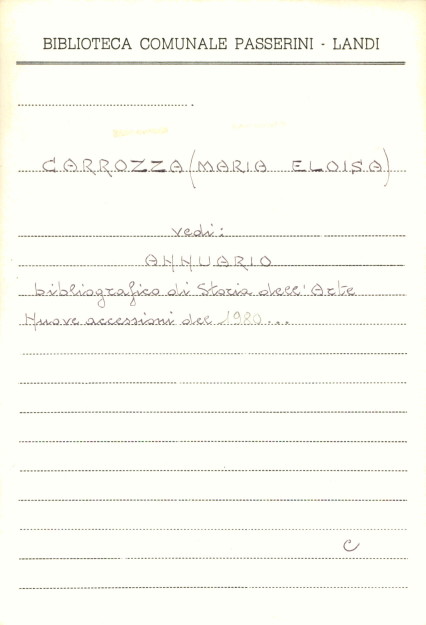 BIBLIOTECA COMUNALE PASSERINI - LANDI
CARROZZA (MARIA ELOISA)
vedi:
ANNUARIO
bibliografico di Storia dell'Arte
Nuove accessioni del 1980...
C